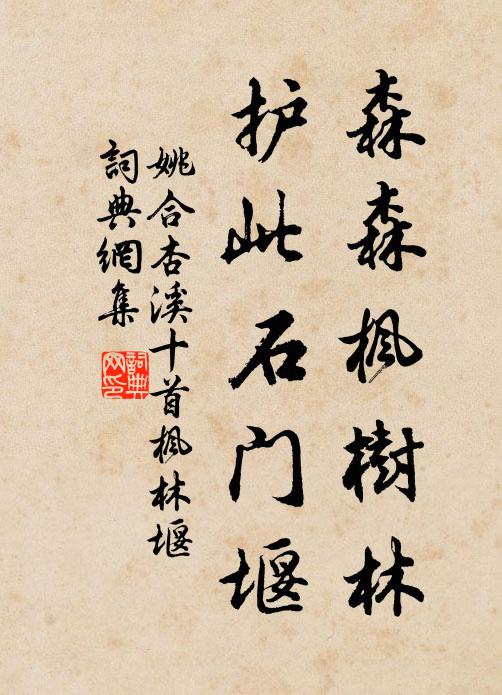 森森枫樹林
护此石门堰
姚合杏溪十首枫林堰
詞典網集
詞典網印